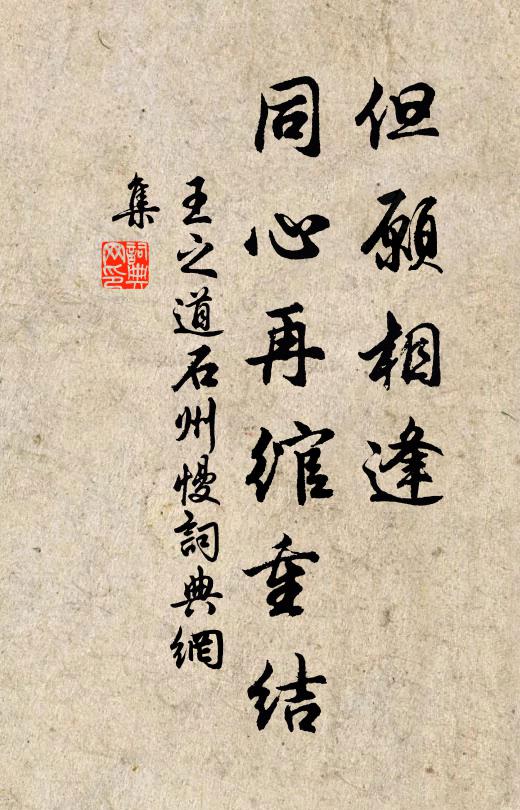 但願相逢
同心再綰重結
王之道石州慢詞典網
集
詞典網印